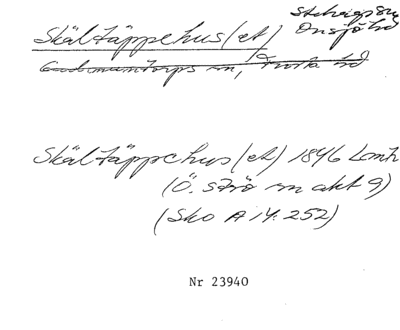 Skältäppehus (et) Stehag sn
Onsjö hd
Gudmuntorps sn, Frosta hd
Skältäppehus (et) 1846 Lantm
(Ö. Strö sn akt 9)
(Sko A 14:252)
Nr 23940